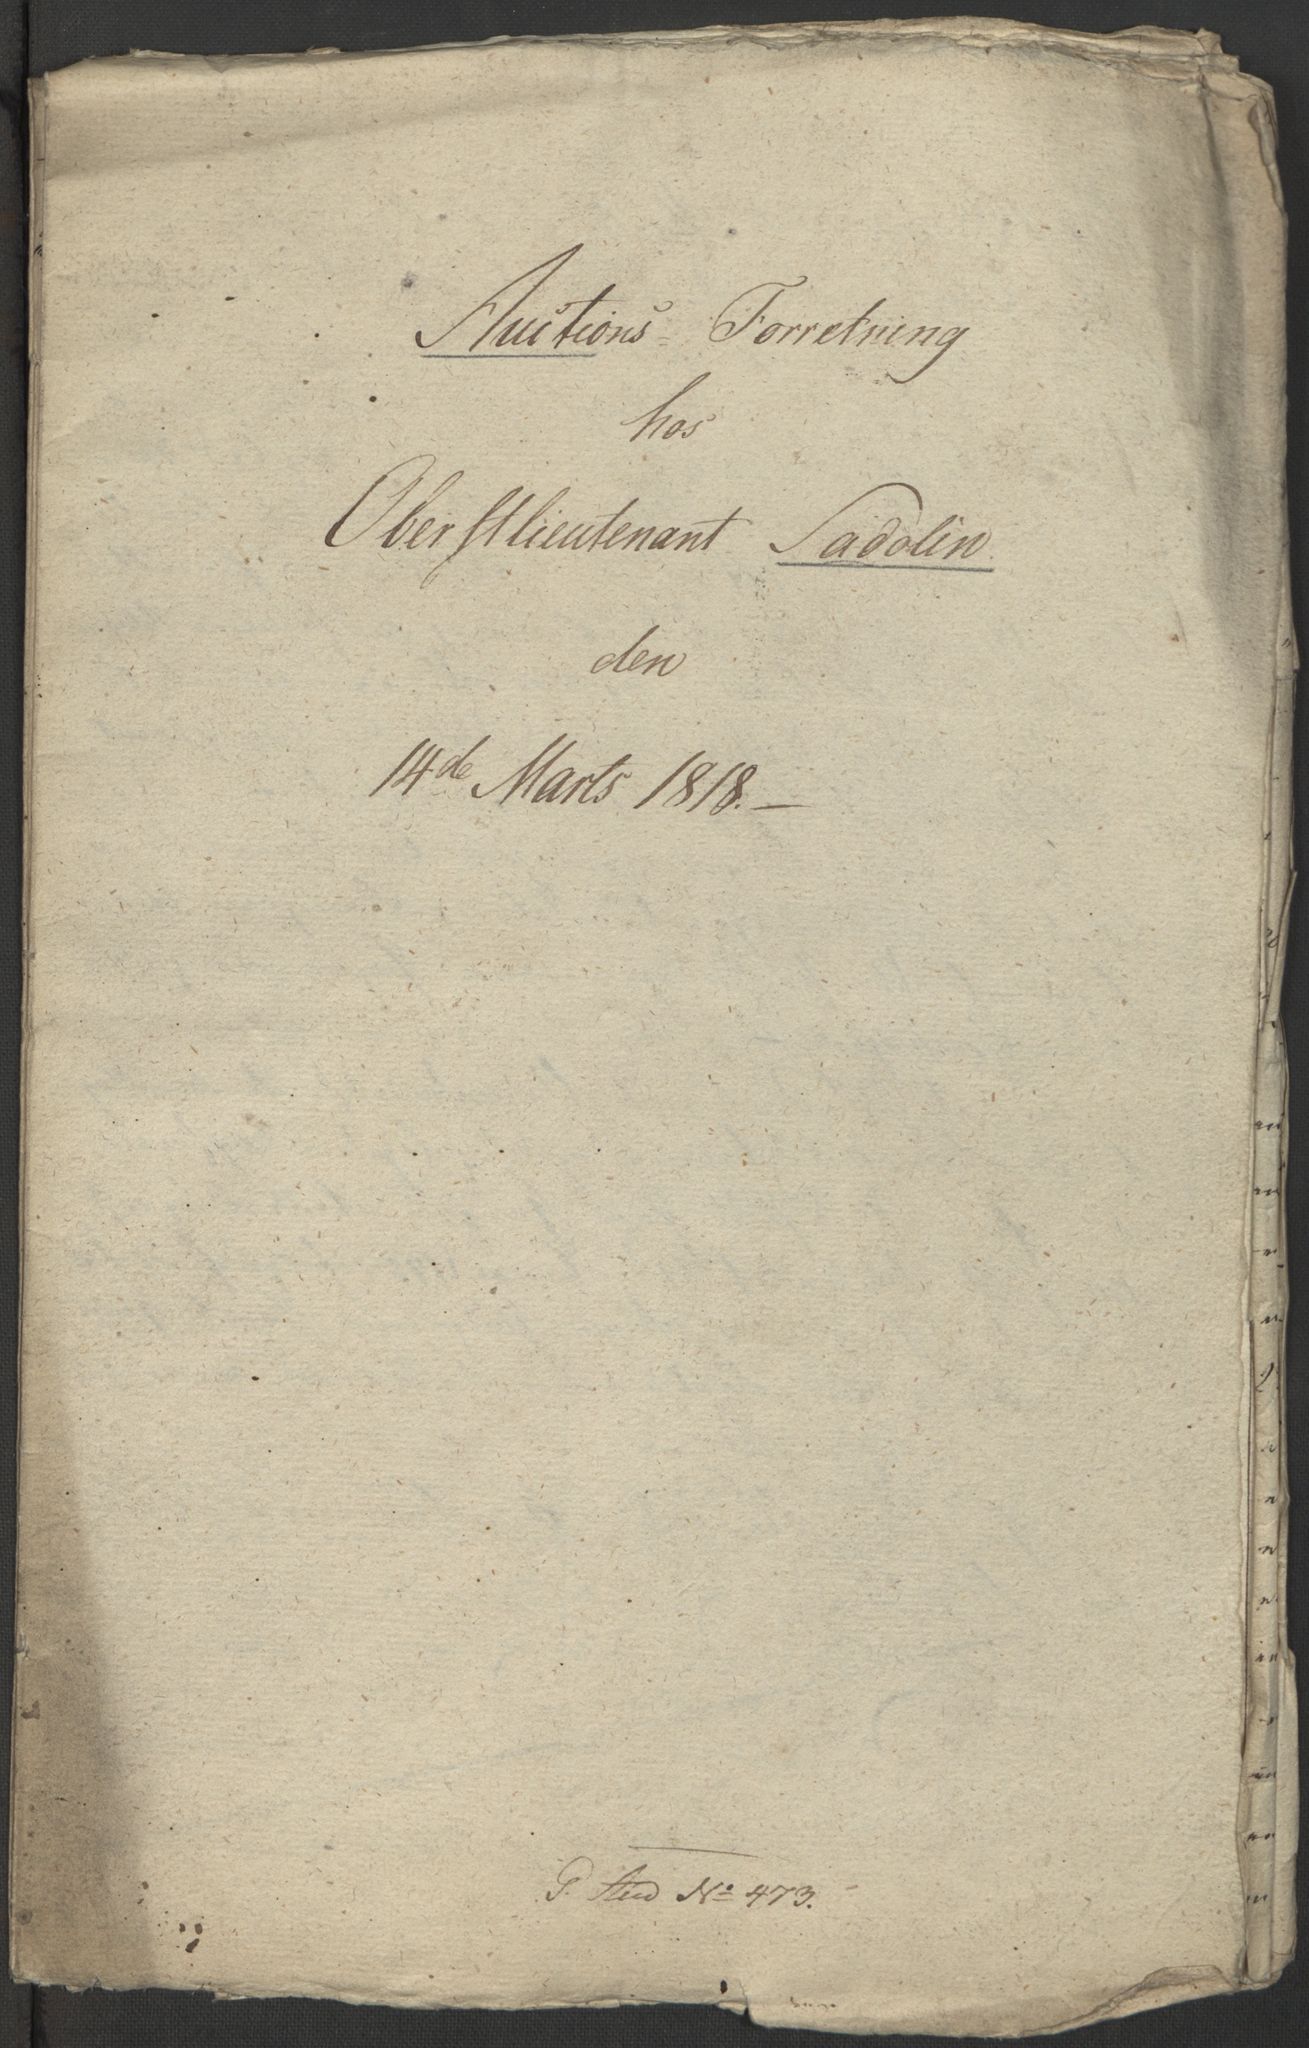 Auctions-Forretning
hos
Oberstlieutenant Sadolin
den
14de Marts 1818.—
No 473.